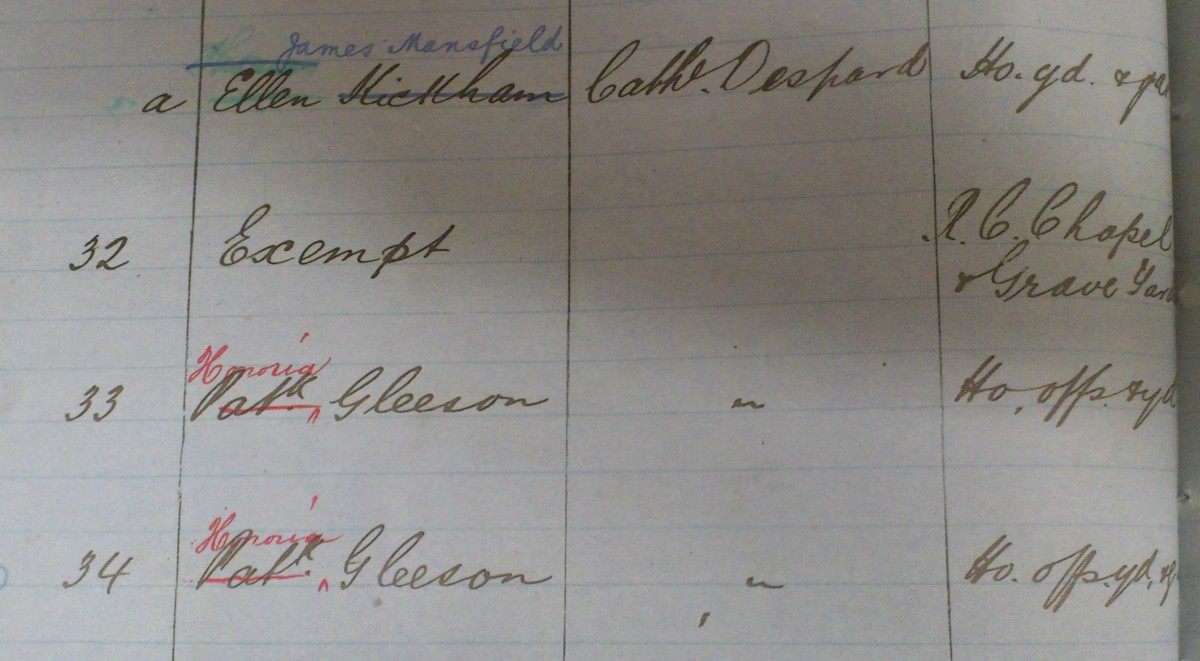 James Mansfield
a Ellen Kickham Cathe. Despard Ho. yd. &
32 Exempt R.C. Chapel
& Grave Yard
Honoria
33 Patk. ^ Gleeson " Ho. offs. & yd
Honoria
34 Patk. ^ Gleeson " Ho. offs. yd. &